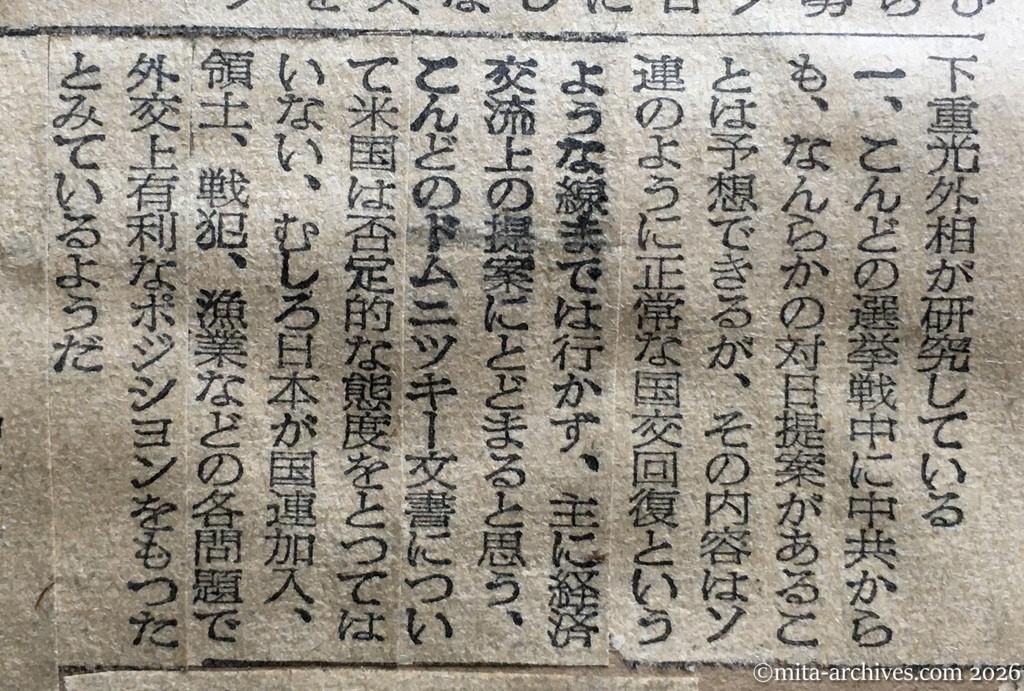 下重光外相が研究している
一、こんどの選挙戦中に中共から
も、なんらかの対日提案があるこ
とは予想できるが、その内容はソ
連のように正常な国交回復という
ような線までは行かず、主に経済
交流上の提案にとどまると思う、
こんどのドムニツキー文書につい
て米国は否定的な態度をとつては
いない、むしろ日本が国連加入、
領土、戦犯、漁業などの各問題で
外交上有利なポジシヨンをもつた
とみているようだ
©mita-archives.com 2026